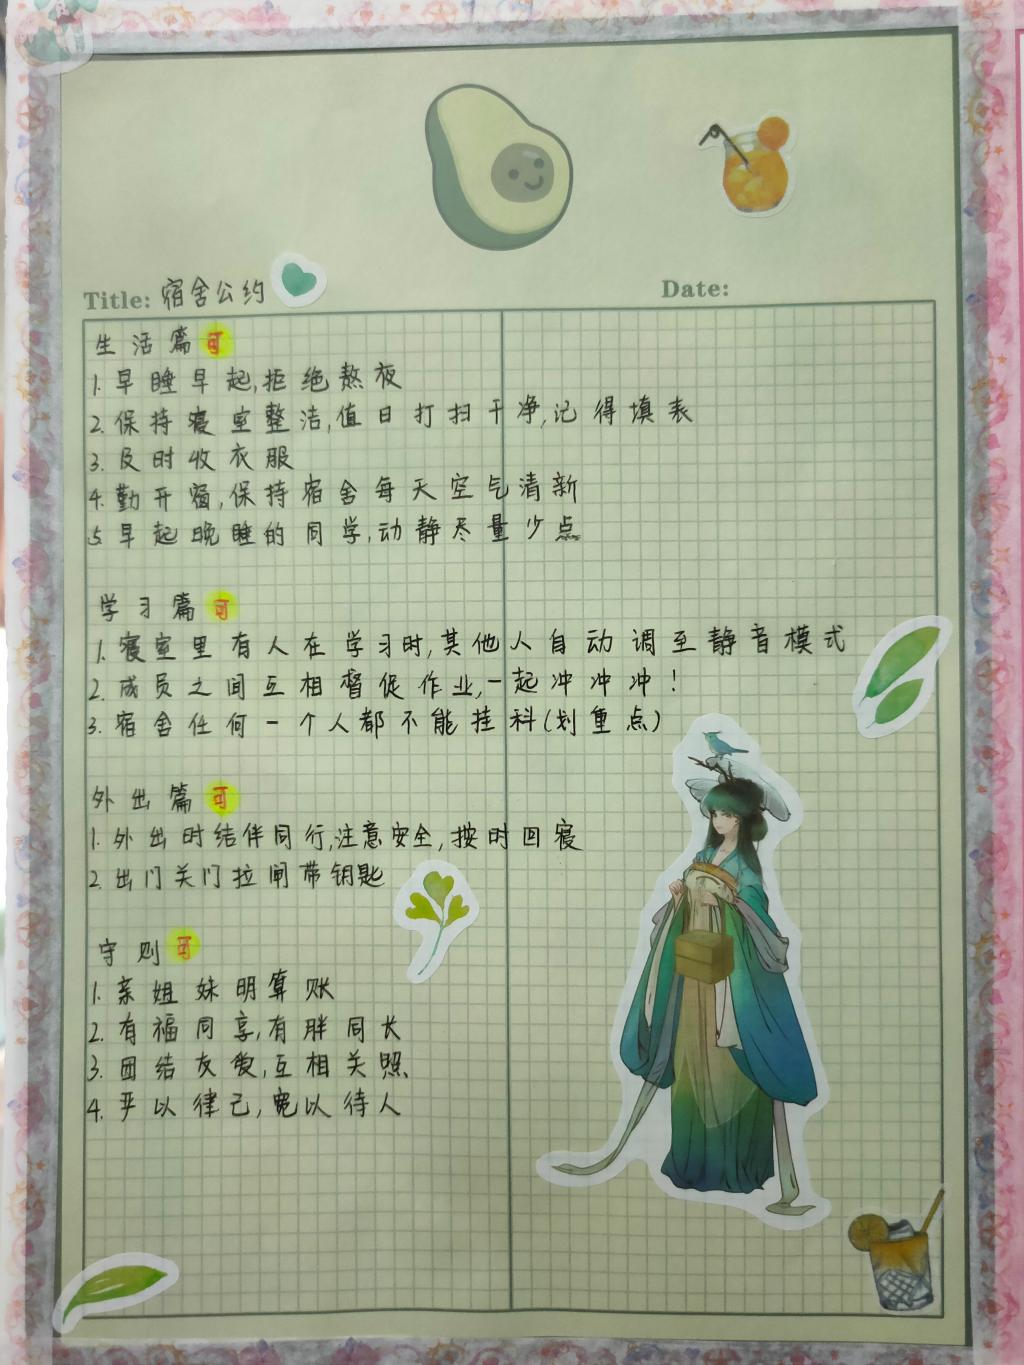 Title: 宿舍公约
Date:
生活篇 可
1. 早睡早起,拒绝熬夜
2. 保持寝室整洁,值日打扫干净,记得填表
3. 及时收衣服
4. 勤开窗,保持宿舍每天空气清新
5. 早起晚睡的同学,动静尽量少点
学习篇 可
1. 寝室里有人在学习时,其他人自动调至静音模式
2. 成员之间互相督促作业,一起冲冲冲!
3. 宿舍任何一个人都不能挂科(划重点)
外出篇 可
1. 外出时结伴同行,注意安全,按时回寝
2. 出门关门拉闸带钥匙
守则 可
1. 亲姐妹明算账
2. 有福同享,有胖同长
3. 团结友爱,互相关照
4. 严以律己,宽以待人